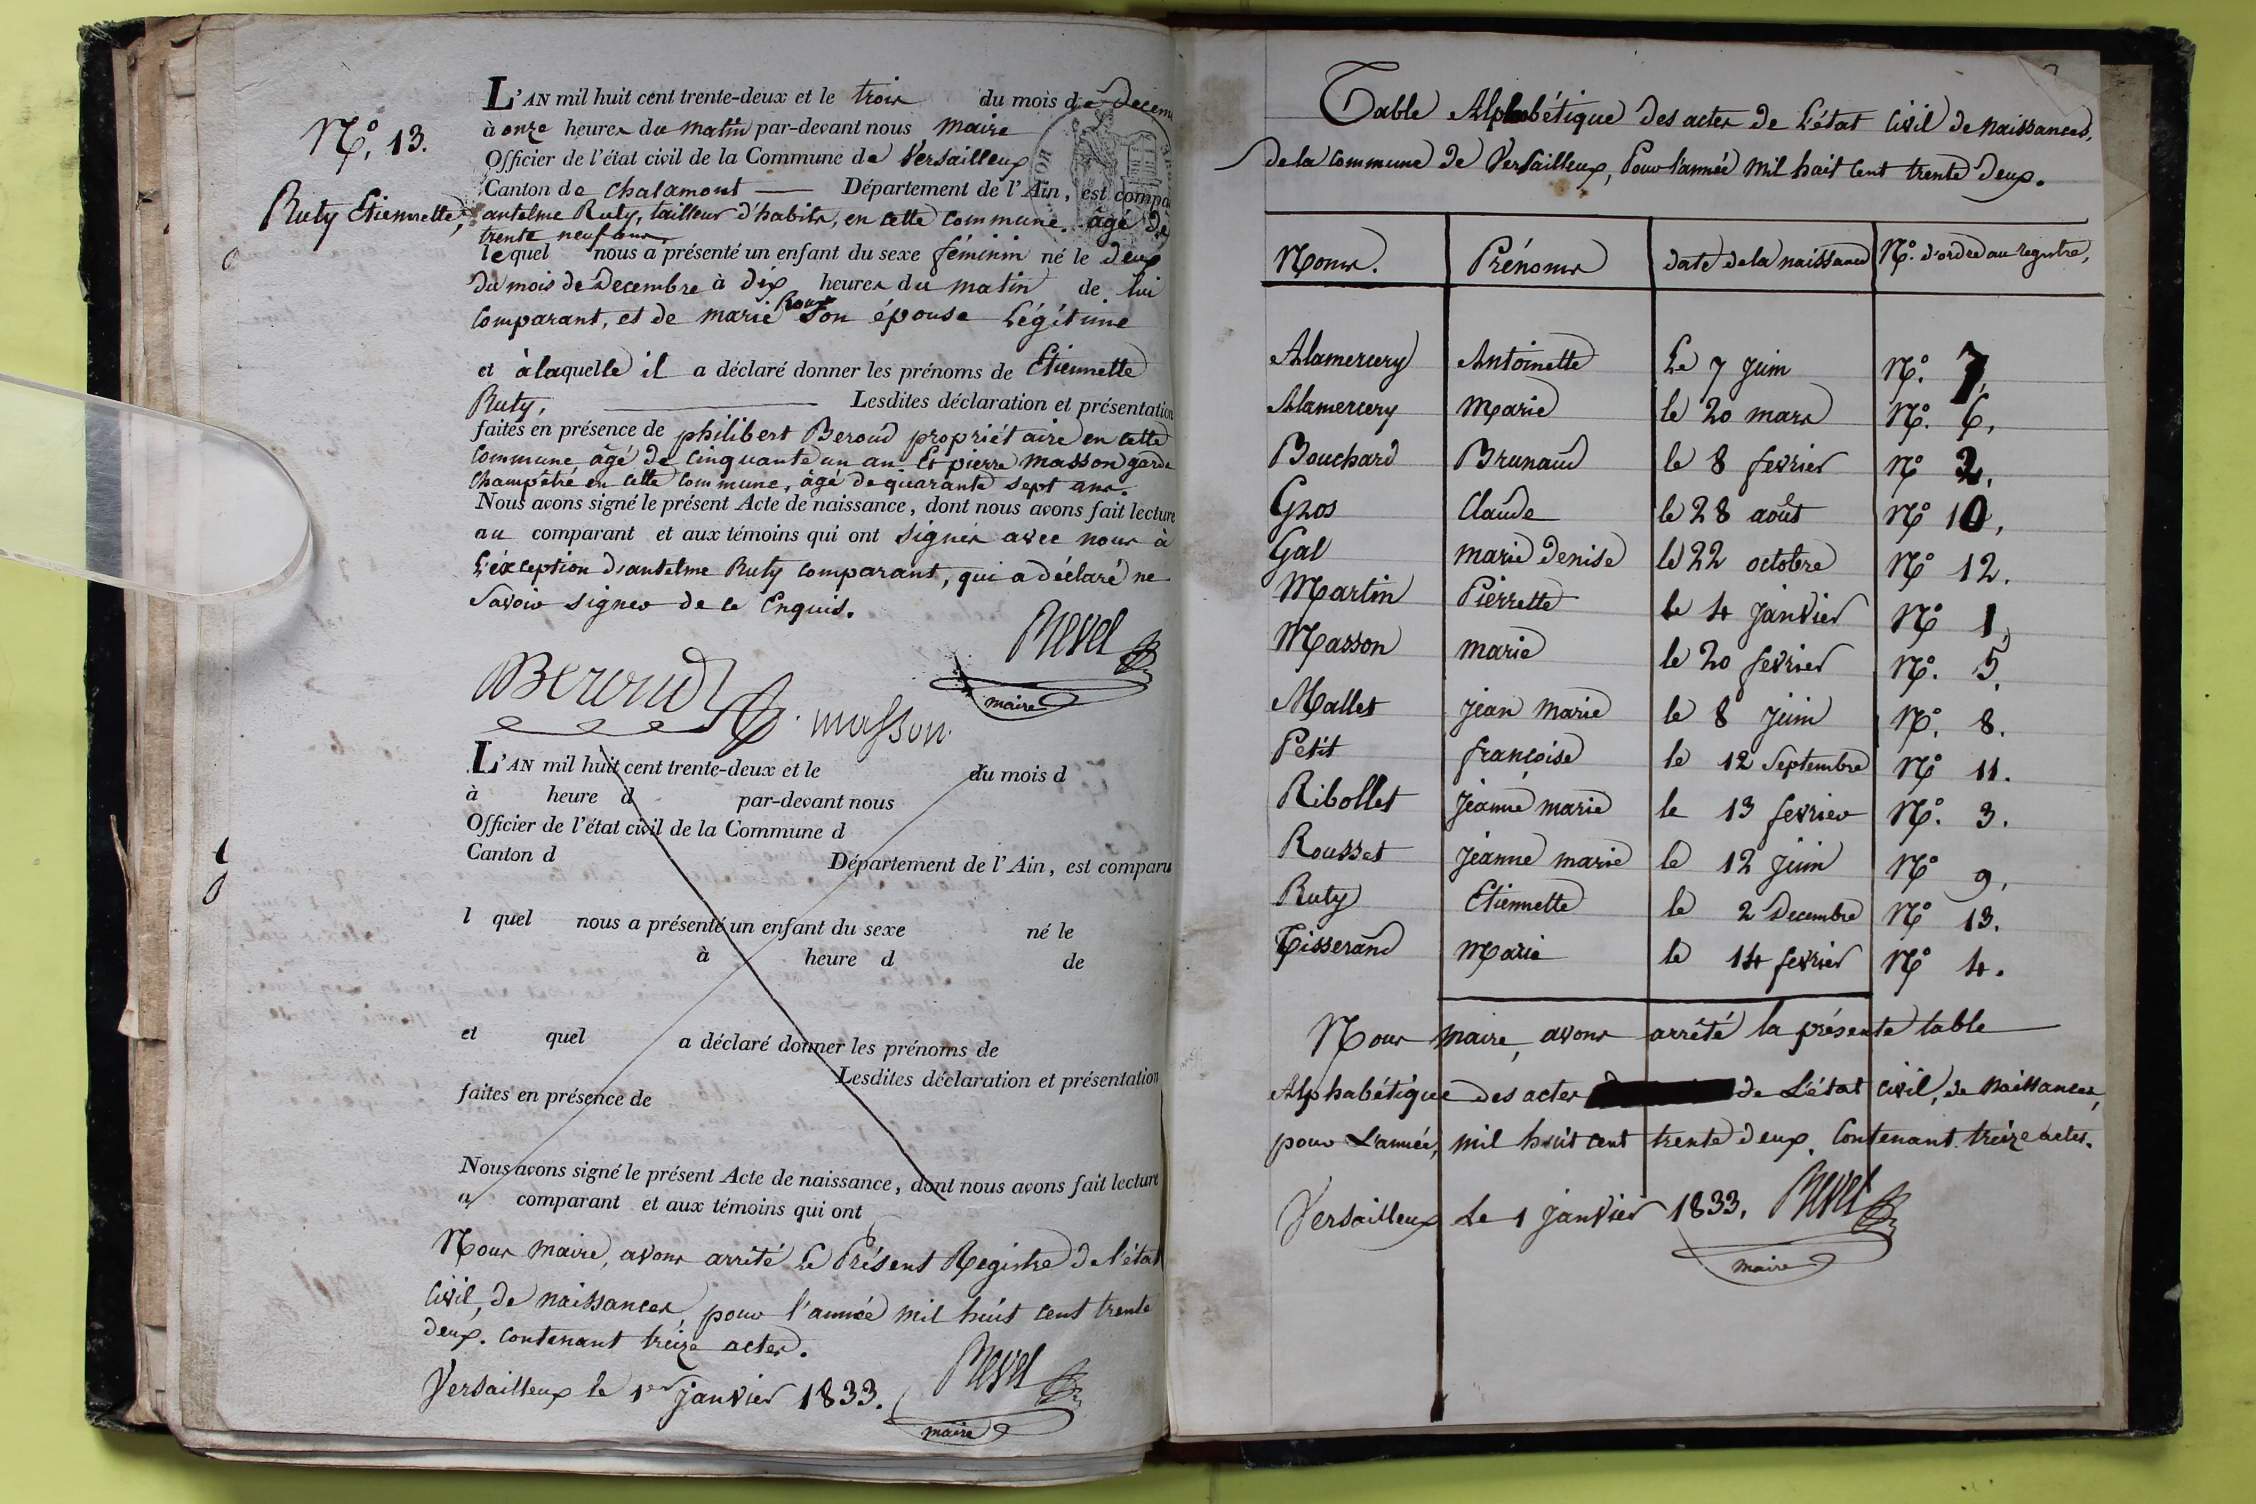 N.° 13.
Ruty Etiennette,
L'AN mil huit cent trente-deux et le trois du mois de Decem
à onze heures du matin par-devant nous maire
Officier de l'état civil de la Commune de Versailleux
Canton de chalamont — Département de l'Ain, est compa
antelme Ruty, tailleur d'habits, en cette commune. âgé de
trente neuf ans,
lequel nous a présenté un enfant du sexe féminin né le deux
du mois de Decembre à dix heures du matin de lui
Roux
comparant, et de marie son épouse Légitime
et à laquelle il a déclaré donner les prénoms de Etiennette
Ruty. — Lesdites déclaration et présentation
faites en présence de philibert Beroud propriétaire en cette
commune âgé de cinquante un an Et pierre masson garde
champêtre en cette commune, âgé de quarante sept ans.
Nous avons signé le présent Acte de naissance, dont nous avons fait lecture
au comparant et aux témoins qui ont signés avec nous à
L'éxception d'antelme Ruty comparant, qui a déclaré ne
Savoir signer de ce Enquis.
Revel
maire
Beroud
masson
L'AN mil huit cent trente-deux et le du mois d
à heure d par-devant nous
Officier de l'état civil de la Commune d
Canton d Département de l'Ain, est comparu
l quel nous a présenté un enfant du sexe né le
à heure d de
et quel a déclaré donner les prénoms de
Lesdites déclaration et présentation
faites en présence de
Nous avons signé le présent Acte de naissance, dont nous avons fait lecture
a comparant et aux témoins qui ont
Nous maire, avons arrêté Le Présent Registre de l'état
Civil, de naissances, pour l'année mil huit cent trente
deux. contenant treize actes.
Versailleux le 1er janvier 1833.
Revel
maire
Table Alphabétique des actes de L'état Civil de naissances,
de la commune de Versailleux, Pour l'année mil huit cent trente deux.
Noms. Prénoms date de la naissance N.° d'ordre au registre,
Alamercery Antoinette Le 7 Juin N.° 7,
Alamercery Marie le 20 mars N.° 6,
Bouchard Brunaud le 8 fevrier N° 2,
Gros Claude le 28 août N° 10,
Gal marie denise le 22 octobre N° 12.
Martin Pierrette le 4 janvier N° 1,
Masson marie le 20 fevrier N.° 5,
Mallet jean marie le 8 juin N.° 8.
Petit françoise le 12 Septembre N° 11.
Ribollet Jeanne marie le 13 fevrier N.° 3.
Rousset Jeanne marie le 12 juin N° 9,
Ruty Etiennette le 2 Decembre N° 13.
Tisserand Marie le 14 fevrier N° 4.
Nous maire, avons arrêté la présente table
Alphabétique des actes de L'état civil, de naissances,
pour L'année, mil huit cent trente deux. Contenant treize actes.
Versailleux Le 1 janvier 1833. Revel
maire